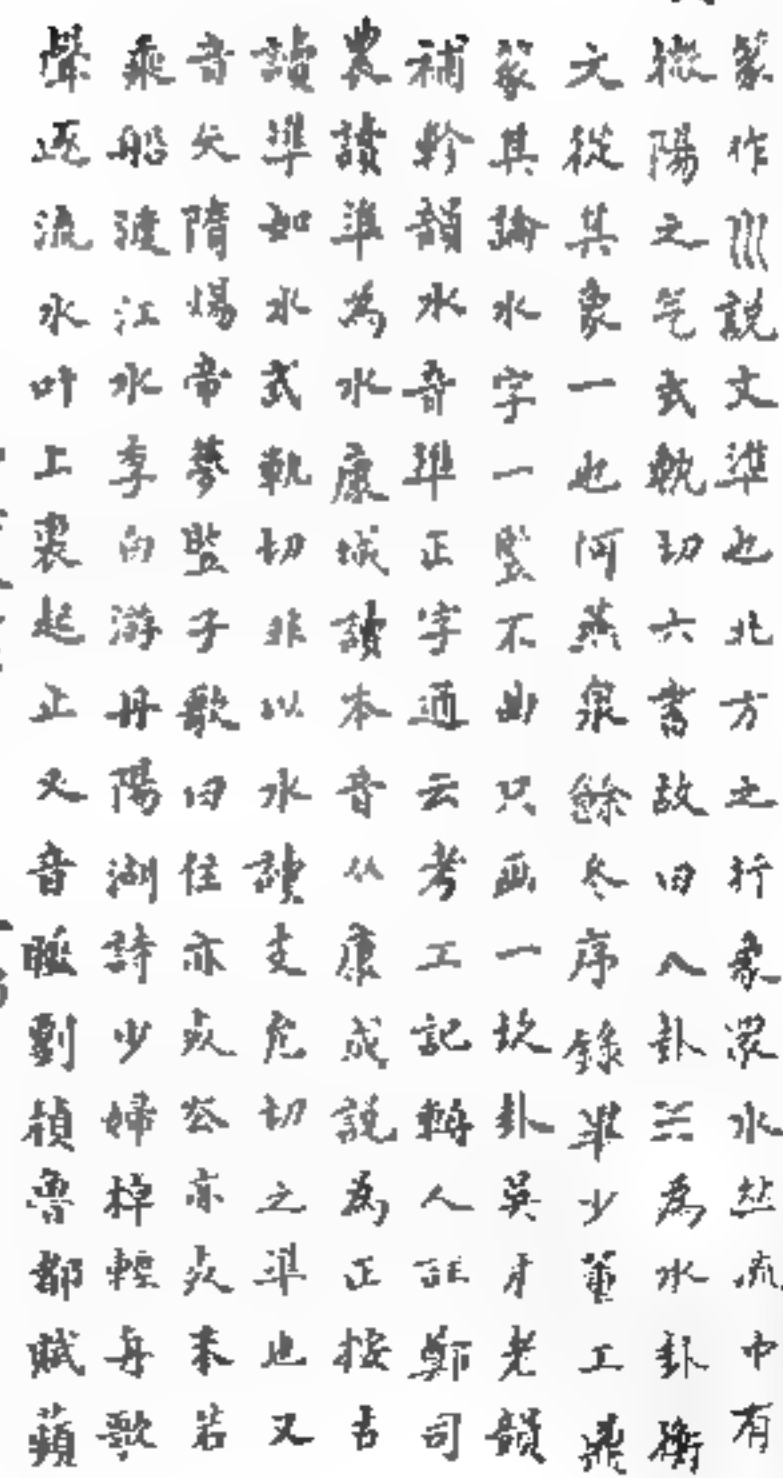 篆作川說文準也北方之行象眾水竝流中有
微陽之气式軌切六書故曰八卦☵為水卦衡
文從其象一也何燕泉餘冬序錄準少董工鼎
篆其論水字一豎不曲只画一坎卦吳才老韻
補幹韻水音準正字通云考工記輈人註鄭司
農讀準為水康成讀本音从康成說為正按古
讀準如水式軌切非以水讀支危切之準也又
音矢隋煬帝夢豎子歌曰住亦死公亦死未若
乘船渡江水李白游丹陽湖詩少婦棹輕舟歌
聲逐流水叶上裊起止又音 劉楨魯都賦蘋